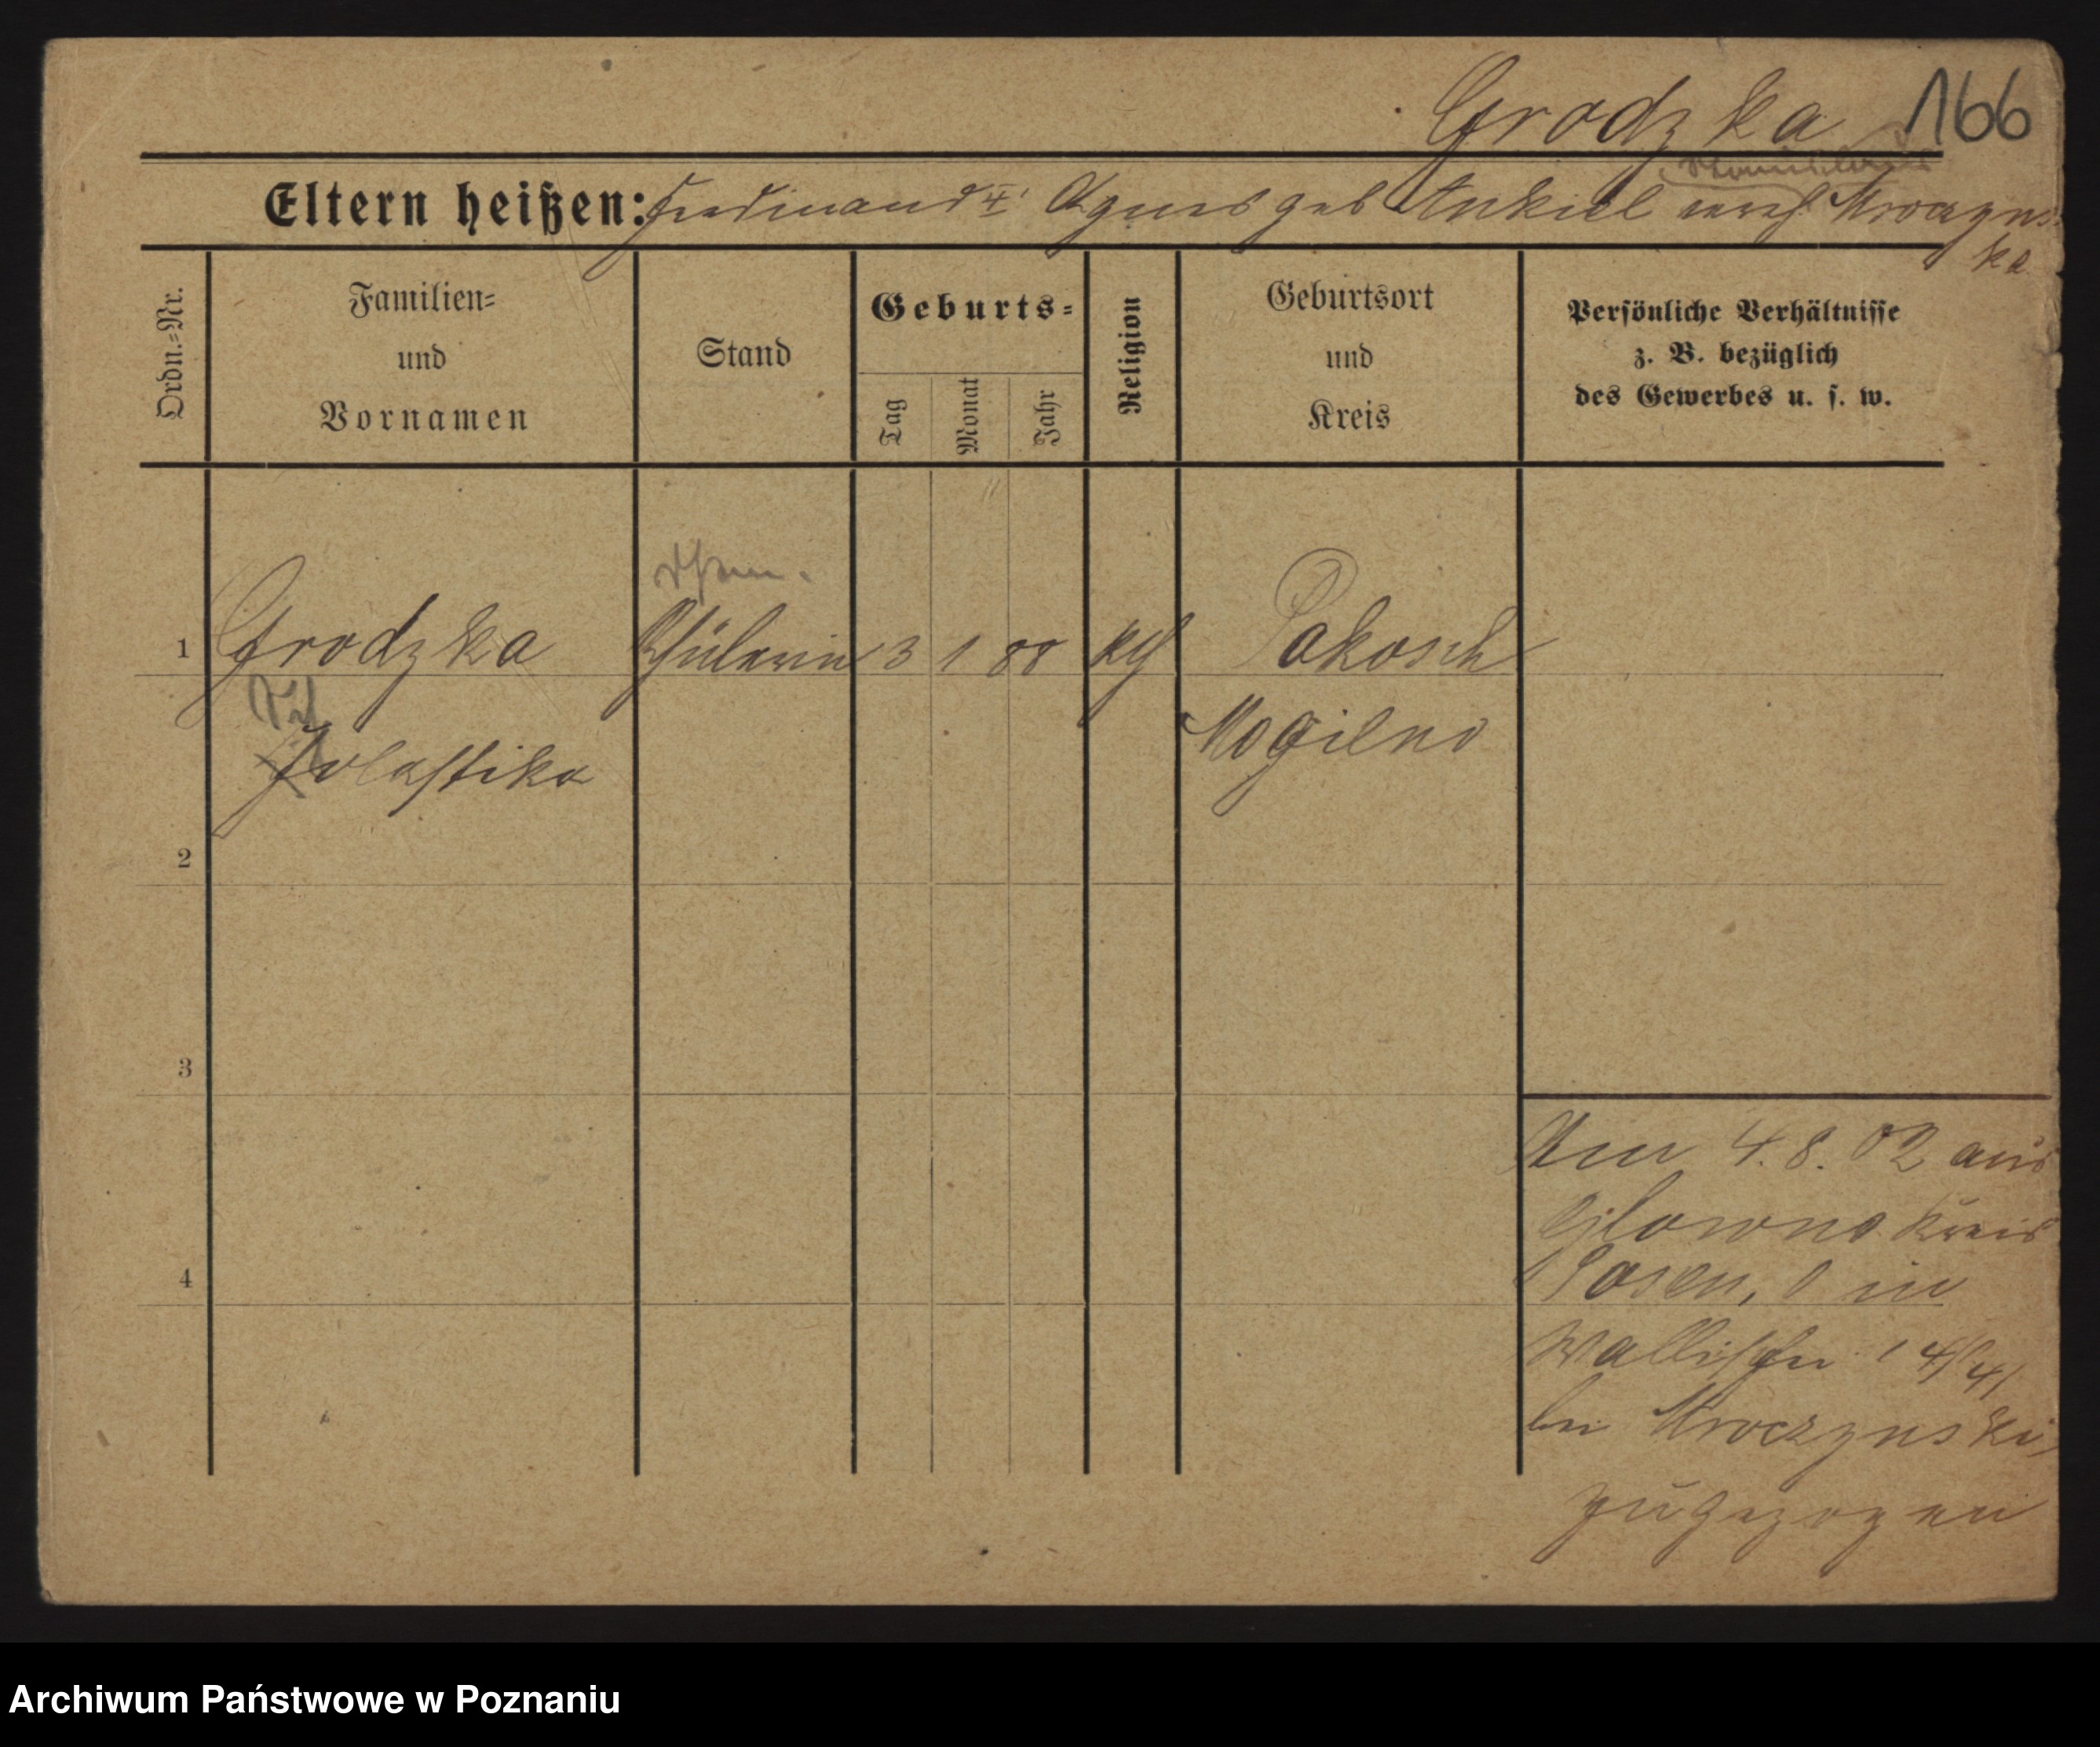 Grodzka 166
Eltern heißen: Ferdinand II Agnes geb Ankiel verehl. Mroczyns
ka
Ordn.=Nr.
Familien=
und
Vornamen
Stand
Geburts=
Tag
Monat
Jahr
Religion
Geburtsort
und
Kreis
Persönliche Verhältnisse
z. B. bezüglich
des Gewerbes u. s. w.
1 Grodzka Schülerin 3 1 88 kth Pakosch
Mogilno
Scholastika
2
3
4
Am 4.8.02 aus
Glowno Kreis
Posen, in
Wallischei
bei Mroczynski
zugezogen
Archiwum Państwowe w Poznaniu